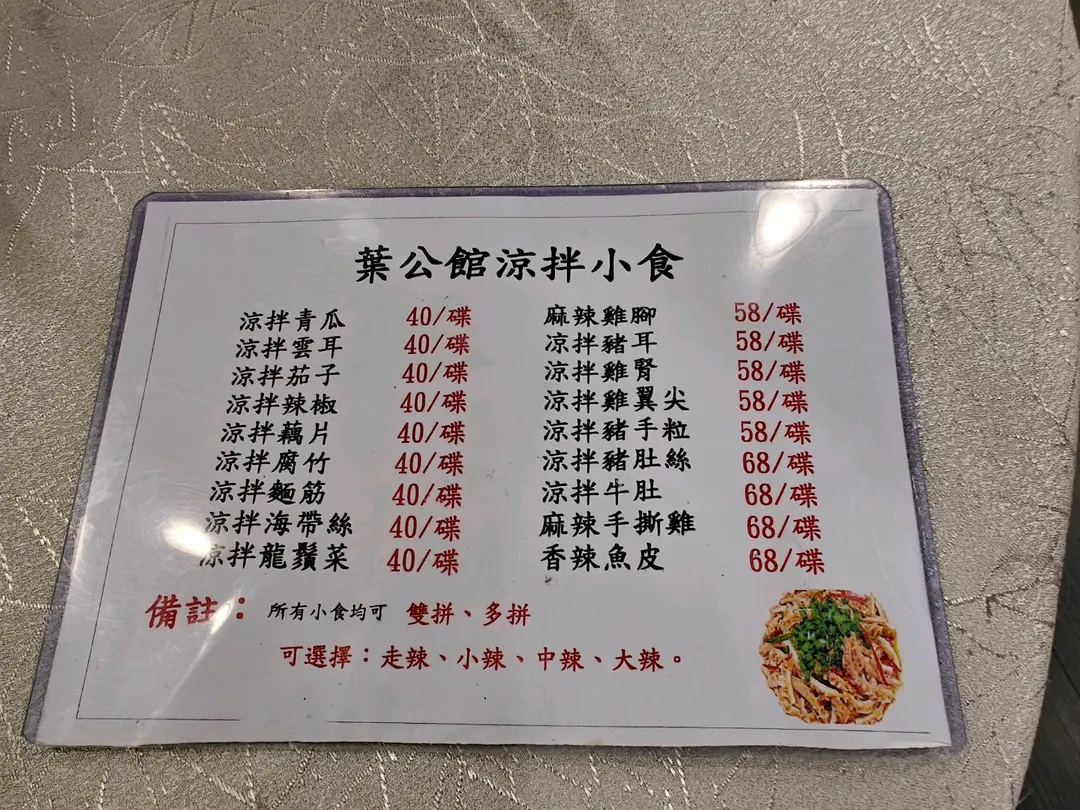 葉公館涼拌小食
涼拌青瓜 40/碟 麻辣雞腳 58/碟
涼拌雲耳 40/碟 凉拌豬耳 58/碟
涼拌茄子 40/碟 涼拌雞腎 58/碟
涼拌辣椒 40/碟 涼拌雞翼尖 58/碟
涼拌藕片 40/碟 涼拌豬手粒 58/碟
涼拌腐竹 40/碟 涼拌豬肚絲 68/碟
涼拌麵筋 40/碟 涼拌牛肚 68/碟
涼拌海帶絲 40/碟 麻辣手撕雞 68/碟
涼拌龍鬚菜 40/碟 香辣魚皮 68/碟
備註：所有小食均可 雙拼、多拼
可選擇：走辣、小辣、中辣、大辣。